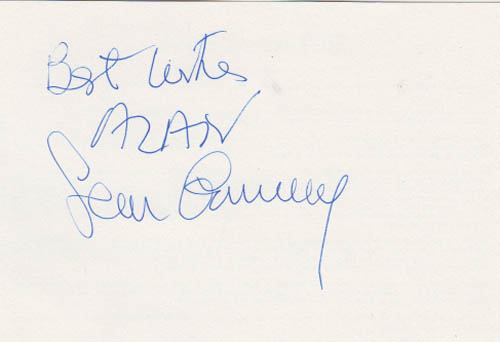 Best Wishes
ALAN
Sean Connery